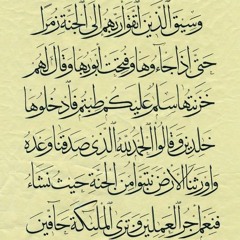 وسيق الذين اتقوا ربهم الى الجنة زمرا
حتى اذا جاءوها وفتحت ابوبها وقال لهم
خزنتها سلم عليكم طبتم فادخلوها
خلدين وقالوا الحمد لله الذي صدقنا وعده
واورثنا الارض نتبوا من الجنة حيث نشاء
فنعم اجر العملين وترى الملئكة حافين